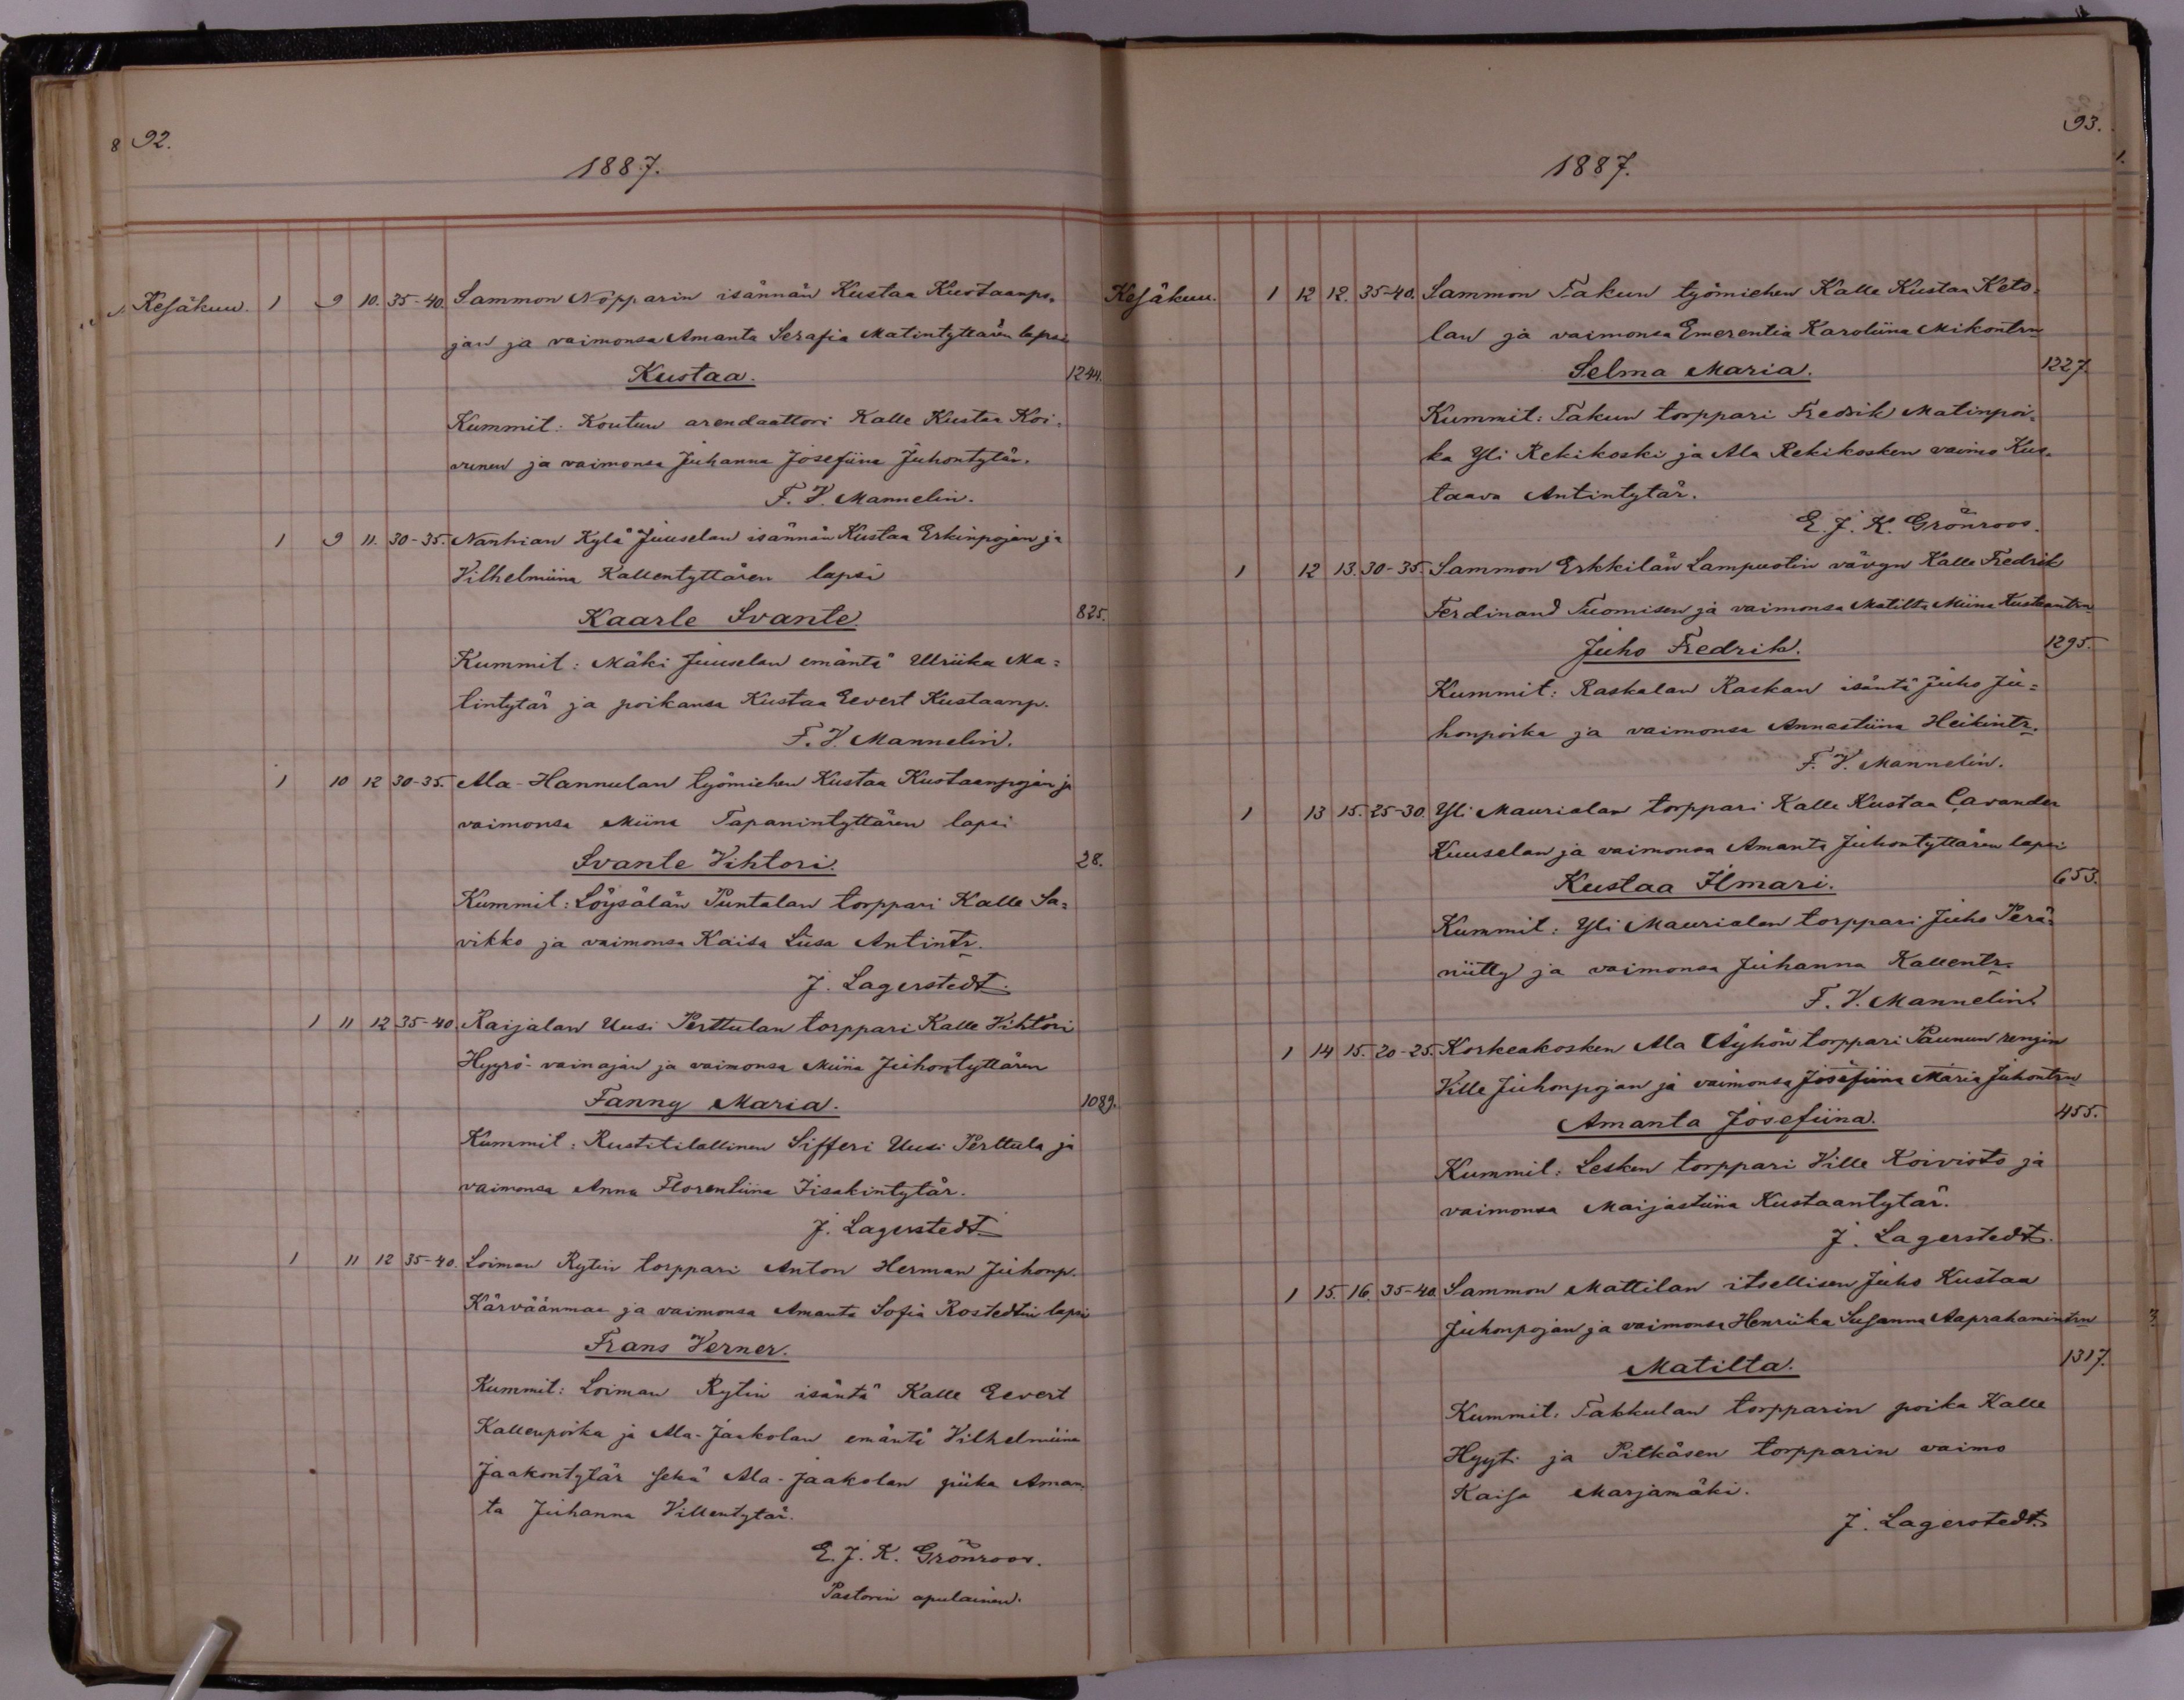 8 92.
1887.
Kesäkuu. 1 9 10. 35-40. Sammon Nopparin isännän Kustaa Kustaanpo-
jan ja vaimonsa Amanta Serafia Matintyttären lapsi
Kustaa. 1244.
Kummit: Koutun arendaattori Kalle Kustaa Koi-
vunen ja vaimonsa Juhanna Josefiina Juhontytär.
F. V. Mannelin.
1 9 11. 30-35. Nanhian Kylä Juuselan isännän Kustaa Erkinpojan ja
Vilhelmiina Kallentyttären lapsi
Kaarle Svante 825.
Kummit: Mäki Juuselan emäntä Ulriika Ma=
tintytär ja poikansa Kustaa Evert Kustaanp.
F. V. Mannelin.
1 10 12 30-35. Ala-Hannulan työmiehen Kustaa Kustaanpojan ja
vaimonsa Miina Tapanintyttären lapsi
Svante Vihtori. 28.
Kummit: Löysälän Puntalan torppari Kalle Sa=
vikko ja vaimonsa Kaisa Liisa Antintr.
J. Lagerstedt.
1 11 12 35-40 Raijalan Uusi Perttulan torppari Kalle Vihtori
Hyyrö-vainajan ja vaimonsa Miina Juhontyttären
Fanny Maria. 1089.
Kummit: Rustitilallinen Sifferi Uusi Perttula ja
vaimonsa Anna Florentiina Iisakintytär.
J. Lagerstedt.
1 11 12 35-40. Loiman Rytin torppari Anton Herman Juhonp.
Kärväänmaa ja vaimonsa Amanta Sofia Rostedtin lapsi
Frans Verner.
Kummit: Loiman Rytin isäntä Kalle Evert
Kallenpoika ja Ala-Jaakolan emäntä Vilhelmiina
Jaakontytär sekä Ala-Jaakolan piika Aman-
ta Juhanna Villentytär.
E. J. K. Grönroos.
Pastorin apulainen.
93.
1887.
Kesäkuu. 1 12 12. 35-40. Sammon Takun työmiehen Kalle Kustaa Keto-
lan ja vaimonsa Emerentia Karoliina Mikontrn
Selma Maria. 1227
Kummit: Takun torppari Fredrik Matinpoi-
ka Yli Rekikoski ja Ala Rekikosken vaimo Kus-
taava Antintytär.
E. J. K. Grönroos.
1 12 13. 30-35. Sammon Erkkilän Lampuotin vävyn Kalle Fredrik
Ferdinand Tuomisen ja vaimonsa Matilta Miina Kustaantrn
Juho Fredrik. 1295.
Kummit: Raskalan Raskan isäntä Juho Ju=
honpoika ja vaimonsa Annastiina Heikintr.
F. V. Mannelin.
1 13 15. 25-30. Yli Maurialan torppari Kalle Kustaa Cavander
Kuuselan ja vaimonsa Amanta Juhontyttären lapsi
Kustaa Ilmari. 653.
Kummit: Yli Maurialan torppari Juho Perä-
niitty ja vaimonsa Juhanna Kallentr.
F. V. Mannelin.
1 14 15. 20-25. Korkeakosken Ala Äyhön torppari Paunun rengin
Ville Juhonpojan ja vaimonsa Josefiina Maria Juhontrn
Amanta Josefiina. 455.
Kummit: Lesken torppari Ville Koivisto ja
vaimonsa Maijastiina Kustaantytär.
J. Lagerstedt.
1 15. 16. 35-40. Sammon Mattilan itsellisen Juho Kustaa
Juhonpojan ja vaimonsa Henriika Susanna Aaprahamintrn
Matilta. 1317.
Kummit: Takkulan torpparin poika Kalle
Hyyti ja Pitkäsen torpparin vaimo
Kaisa Marjamäki.
J. Lagerstedt.